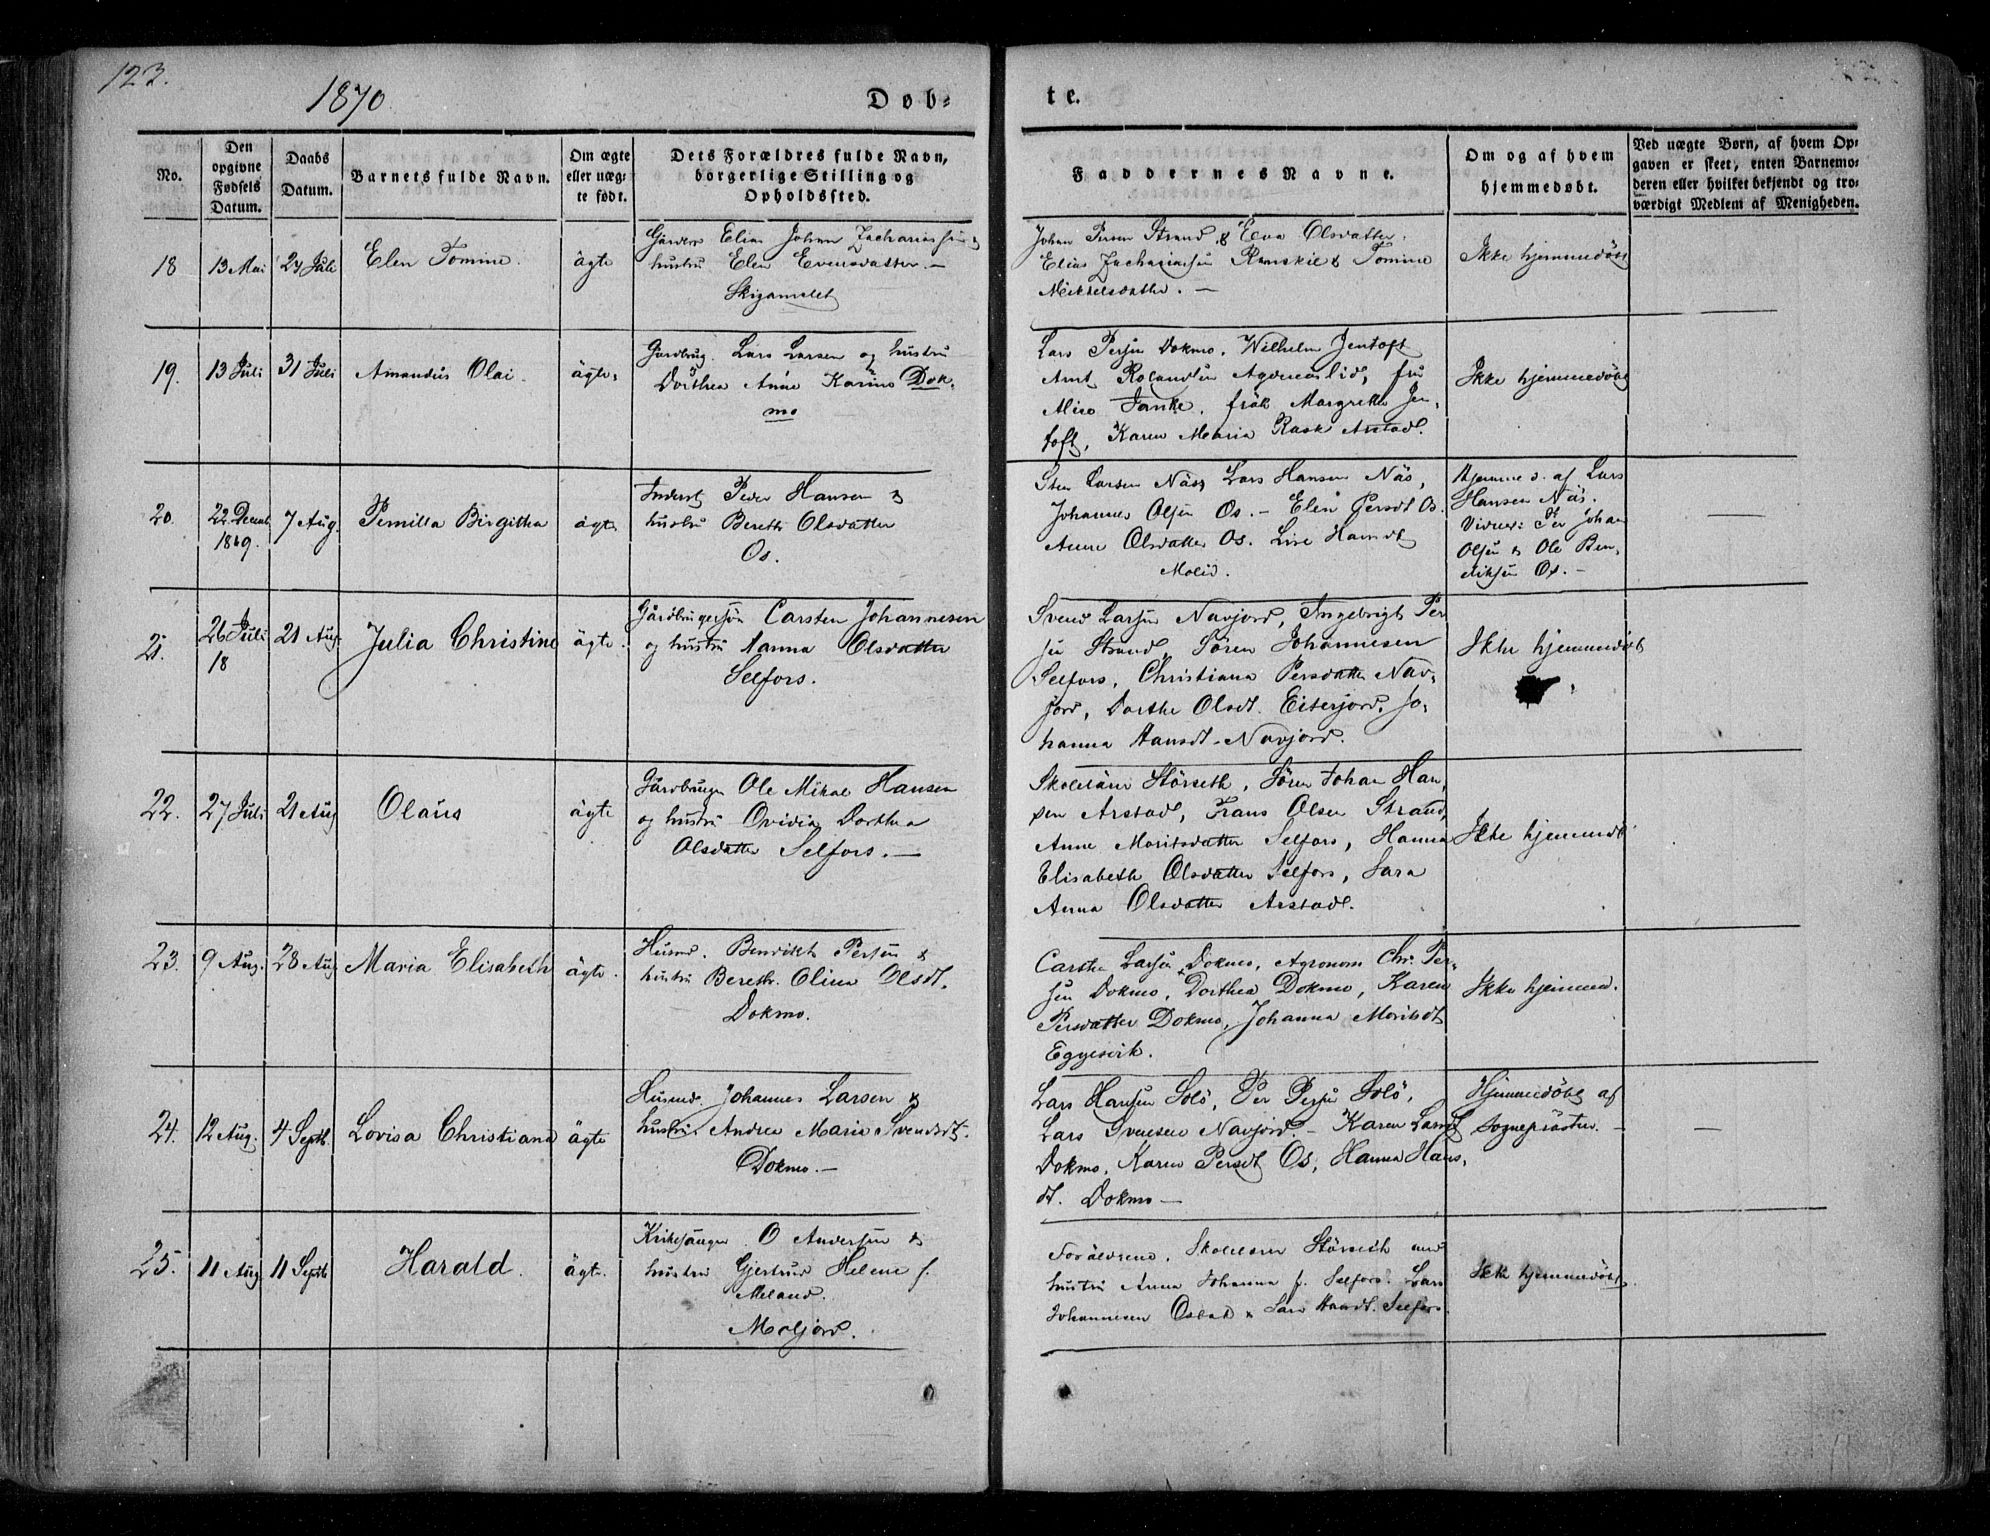 123.
1870
Døb-
te.
No.
Den opgivne Fødsels Datum.
Daabs Datum.
Barnets fulde Navn.
Om ægte eller uægte født.
Dets Forældres fulde Navn, borgerlige Stilling og Opholdssted.
Faddernes Navne.
Om og af hvem hjemmedøbt.
Ved uægte Børn, af hvem Opgaven er skeet, enten Barnemoderen eller hvilket bekjendt og troværdigt Medlem af Menigheden.
18
13 Mai
24 Juli
Elen Tomine.
ägte
Elias Johan Zachariassen &
hustru Elen Evensdatter. —
Skigamslet
Johan Persen Strand & Eva Olsdatter.
Elias Zachariasen & Tomine
Mikkelsdatter. —
Ikke hjemmedöbt
19.
13 Juli
31 Juli
Amandus Olai.
ägte.
Gårdbrug. Lars Larsen og hustru
Dorthea Anne Karine Dok-
mo
Lars Persen Dokmo. Wilhelm Jentoft
Arnt fru
frök Margrethe Jen-
toft, Karen Maria Rask Arstad.
Ikke hjemmedöbt
20.
22 Decemb.
1869.
7 Aug.
Pernilla Birgitha
ägte
Inderst Peder Hansen &
hustru Bereth Olsdatter
Os.
Sten Larsen Näs, Lars Hansen Näs,
Johannes Olsen Os. — Elen Persdt Os.
Anne Olsdatter Os. Lise Hansdt
Molid.
Hjemme d. af Lars
Hansen Näs.
Vidner: Per Johan
Olsen & Ole Ben-
diksen Os. —
—
21.
26 Juli
18
21 Aug.
Julia Christine
ägte.
Gårdbrugersön Carsten Johannesen
og hustru Hanna Olsdatter
Selfors.
Svend Larsen Navjord, Ingebrigt Per-
sen Strand, Sören Johannesen
Selfors, Christiana Persdatter Nav-
jord, Dorthe Olsdt. Eiterjord, Jo-
hanna Hansdt. Navjord.
Ikke hjemmedöbt
22.
27 Juli
21 Aug
Olaus
ägte
Gårdbruger Ole Mikal Hansen
og hustru Ovidia Dorthea
Olsdatter Selfors. —
Skolelärer Störseth, Sören Johan Han-
sen Arstad, Frans Olsen Strand,
Anne Moritsdatter Selfors, Hanna
Elisabeth Olsdatter Selfors, Sara
Anna Olsdatter Arstad.
Ikke hjemmedöbt
23.
9 Aug.
28 Aug
Maria Elisabeth
ägte.
Husmd. Bendikt Persen &
hustru Bereth Olina Olsdt.
Dokmo.
Carsten Larsen Dokmo, Agronom Chr. Per-
sen Dokmo, Dorthea Dokmo, Karen
Persdatter Dokmo, Johanna Moritsdt
Eggesvik.
Ikke hjemmed.
24.
12 Aug.
4 Septb.
Lovisa Christiana
ägte
Husmd. Johannes Larsen &
hustru Andrea Maria Svendsdt.
Dokmo. —
Lars Hansen Solö, Per Persen Solö,
Lars Svensen Navjord. — Karen Larsdt
Dokmo, Karen Persdt Os, Hanna Hans-
dt. Dokmo —
Hjemmedöbt af
Sognepräster. —
—
25.
11 Aug.
11 Septb
Harald.
ägte.
Kirkesanger O Andersen &
hustru Gjertrud Helene f.
Meland.
Moljord.
Foräldrene. Skolelärer Störseth med
hustru Anna Johanna f. Selfors. Lars
Johannesen Osbak & Sara Hansdt. Selfors.
Ikke hjemmedöbt.